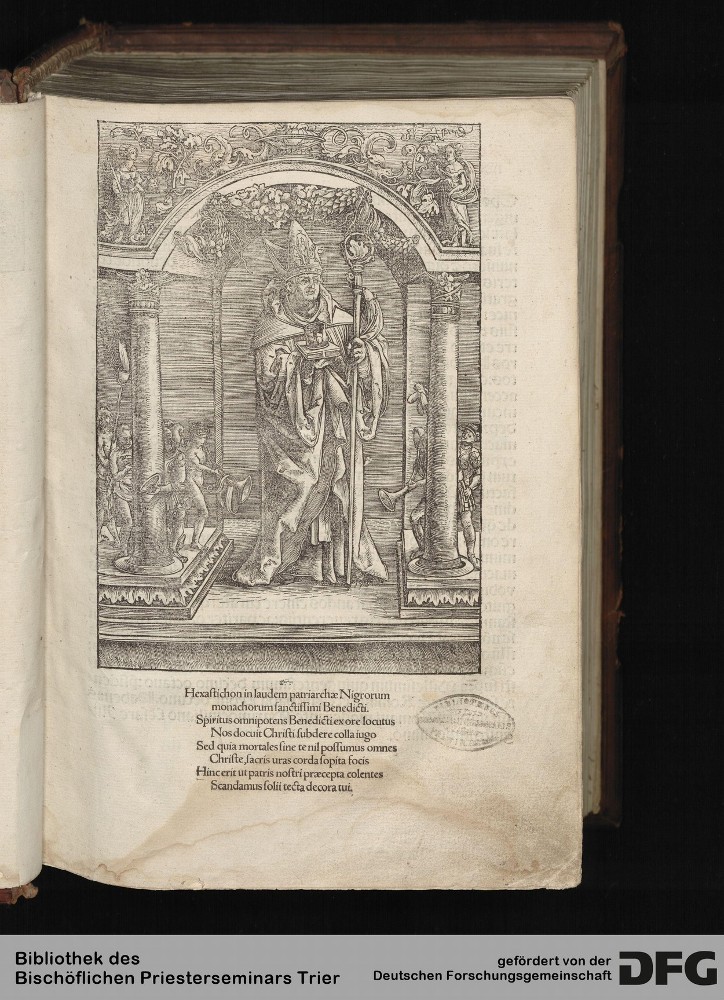 Hexastichon in laudem patriarchæ Nigrorum
monachorum sanctissimi Benedicti.
Spiritus omnipotens Benedicti ex ore locutus
Nos docuit Christi subdere colla iugo
Sed quia mortales sine te nil possumus omnes
Christe, sacris uras corda sopita focis
Hinc erit ut patris nostri præcepta colentes
Scandamus solii tecta decora tui.
Bibliothek des
Bischöflichen Priesterseminars Trier
gefördert von der
Deutschen Forschungsgemeinschaft
DFG